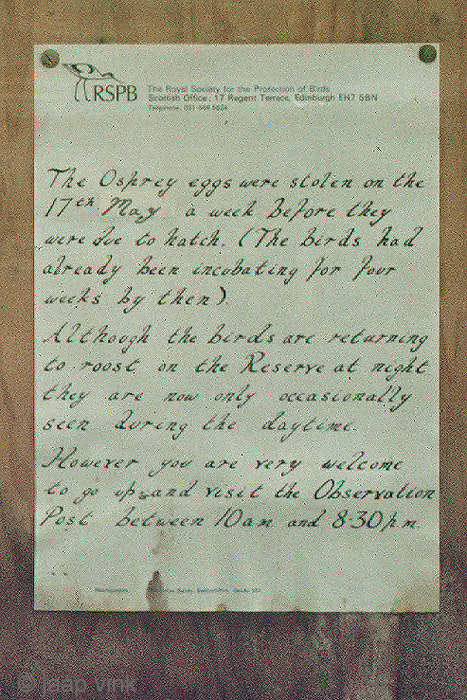 RSPB
The Royal Society for the Protection of Birds
Scottish Office: 17 Regent Terrace, Edinburgh EH7 5BN
Telephone: 031-556
The Osprey eggs were stolen on the
17th May a week before they
were due to hatch. (The birds had
already been incubating for four
weeks by then).
Although the birds are returning
to roost on the Reserve at night
they are now only occasionally
seen during the daytime.
However you are very welcome
to go up and visit the Observation
Post between 10am and 8·30pm
© jaap vink